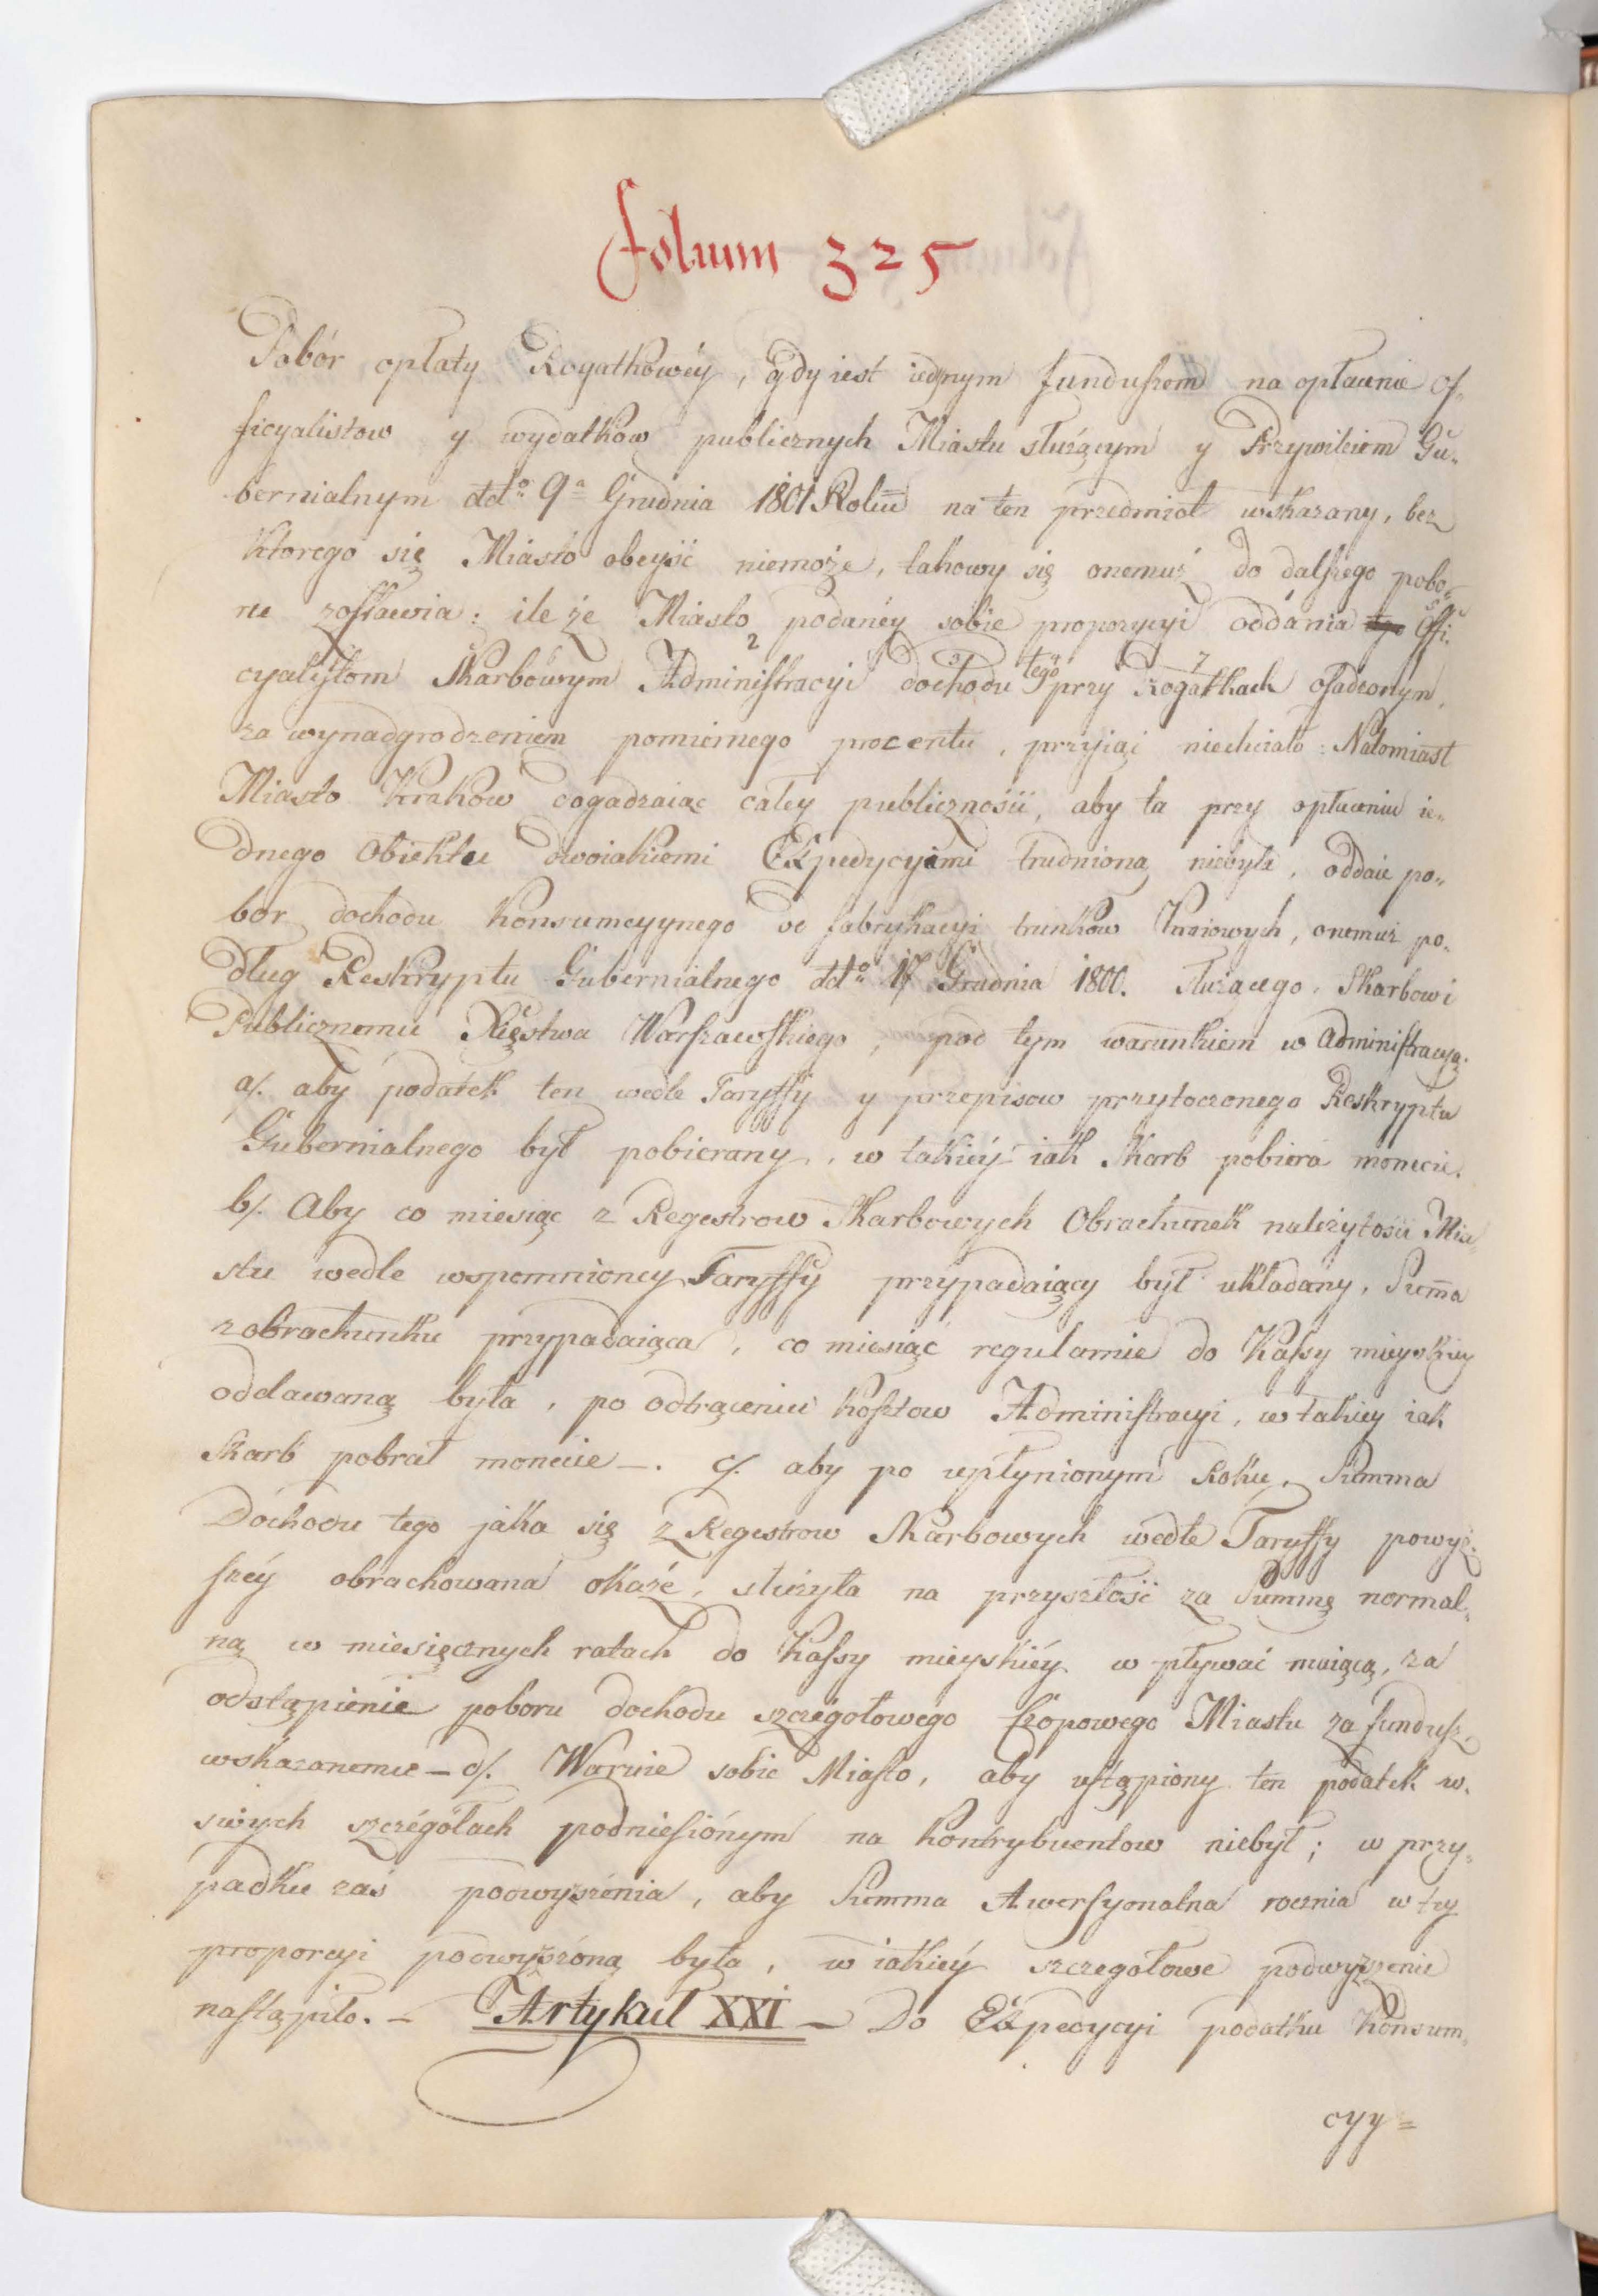 folium 325
Pobór opłaty Rogatkowéy, gdy iest iednym funduszem na opłacenie of„
ficyalistow y wydatków publicznych Miastu służącym y Przywileiem Gu„
bernialnym ddto 9a Grudnia 1801 Roku na ten przedmiot wskazany, bez
ktorego się Miasto obeyść niemoże, takowy się onemuż do dalszego pobo„
ru zostawia: ile że Miasto podanéy sobie propozycyi oddania Offi„
cyalistom Skarbowym 2 Administracyi dochodu tego przy 7 rogatkach osadzonym,
za wynadgrodzeniem pomiernego procentu, przyiąć niechciało: Natomiast
Miasto Kraków dogadzaiąc całey publiczności, aby ta przy opłaceniu ie„
dnego Obiektu dwoiakiemi Expedycyiami trudnioną niebyła, oddaie po„
bor dochodu Konsumcyynego od fabrykacyi trunków Kraiowych, onemuż po„
dług Reskryptu Gubernialnego ddto 17 Grudnia 1800. służącego, Skarbowi
Publicznemu Xięstwa Warszawskiego, pod tym warunkiem w Administracyą.
a/. aby podatek ten wedle Taryffy y przepisow przytoczonego Reskryptu
Gubernialnego był pobierany, w takiéy iak Skarb pobiera monecie.
b/. Aby co miesiąc z Regestrow Skarbowych Obrachunek należytości Mia„
stu wedle wspomnioney Taryffy przypadaiący był układany, Suma
z obrachunku przypadaiąca, co miesiąc regularnie do Kassy mieyskiey
oddawaną była, po odtrąceniu kosztow Administracyi, w takiey iak
Skarb pobrał monecie –. c/. aby po upłynionym Roku, Summa
Dochodu tego jaka się z Regestrow Skarbowych wedle Taryffy powyż„
széy obrachowana okaże, służyła na przyszłość za Summę normal„
ną w miesięcznych ratach do Kassy mieyskiéy wpływać maiącą, za
odstąpienie poboru dochodu szczegołowego Czopowego Miastu za fundusz
wskazanemu – d/. Waruie sobie Miasto, aby ustąpiony ten podatek w„
swych szczegółach podniesiónym na kontrybuentow niebył; w przy„
padku zaś podwyższenia, aby Summa Awersyonalna roczna w tey
proporcyi podwyższóną była, w iakiéy szczegołowe podwyższenie
nastąpiło. – Artykuł XXI – Do Expedycyi podatku Konsum„
cyy=